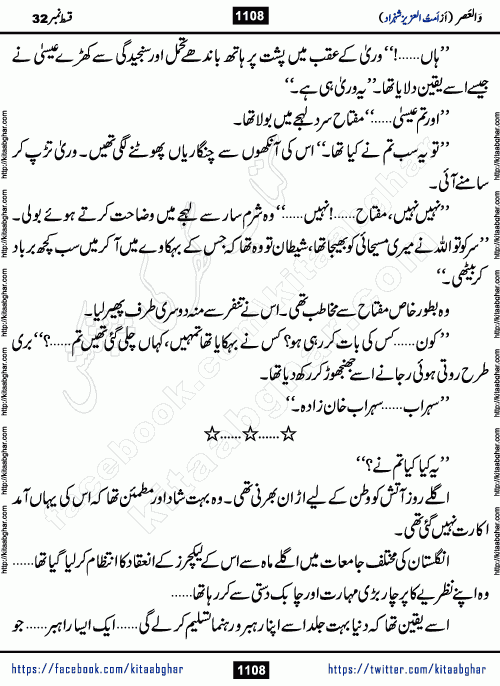 قسط نمبر 32
1108
وَالعَصر (از اَمتُ العزیز شہزاد)
’’ہاں......!‘‘ وریٰ کے عقب میں پشت پر ہاتھ باندھے تحمل اور سنجیدگی سے کھڑے عیسیٰ نے
جیسے اسے یقین دلایا تھا۔ ’’یہ وریٰ ہی ہے۔‘‘
’’اور تم عیسیٰ......‘‘ مفتاح سرد لہجے میں بولا تھا۔
’’تو یہ سب تم نے کیا تھا۔‘‘ اس کی آنکھوں سے چنگاریاں پھوٹنے لگی تھیں۔ وریٰ تڑپ کر
سامنے آئی۔
’’نہیں نہیں، مفتاح......! نہیں......‘‘ وہ شرم سار سے لہجے میں وضاحت کرتے ہوئے بولی۔
’’سر کو تو اللہ نے میری مسیحائی کو بھیجا تھا، شیطان تو وہ تھا کہ جس کے بہکاوے میں آ کر میں سب کچھ برباد
کر بیٹھی۔‘‘
وہ بطور خاص مفتاح سے مخاطب تھی۔ اس نے تنفر سے منہ دوسری طرف پھیر لیا۔
’’کون...... کس کی بات کر رہی ہو؟ کس نے بہکایا تھا تمہیں، کہاں چلی گئی تھیں تم......؟‘‘ بری
طرح روتی ہوئی رجا نے اسے جھنجھوڑ کر رکھ دیا تھا۔
’’سہراب...... سہراب خان زادہ۔‘‘
☆......☆......☆
’’یہ کیا کیا تم نے؟‘‘
اگلے روز آتش کو وطن کے لیے اڑان بھرنی تھی۔ وہ بہت شاد اور مطمئن تھا کہ اس کی یہاں آمد
اکارت نہیں گئی تھی۔
انگلستان کی مختلف جامعات میں اگلے ماہ سے اس کے لیکچرز کے انعقاد کا انتظام کر لیا گیا تھا......
وہ اپنے نظریے کا پرچار بڑی مہارت اور چابک دستی سے کر رہا تھا......
اسے یقین تھا کہ دنیا بہت جلد اسے اپنا رہبر و رہنما تسلیم کر لے گی...... ایک ایسا راہبر...... جو
https://facebook.com/kitaabghar
1108
https://twitter.com/kitaabghar
http://kitaabghar.com
http://kitaabghar.com
http://kitaabghar.com
http://kitaabghar.com
http://kitaabghar.com
http://kitaabghar.com
http://kitaabghar.com
http://kitaabghar.com
کتاب گھر کی پیشکش
kitaabghar.com
facebook.com/kitaabghar